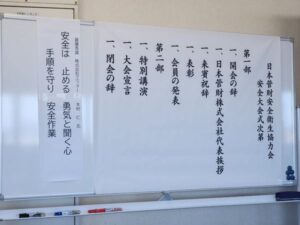 日本管財安全衛生協力会
安全大会式次第
第一部
一、開会の辞
一、日本管財株式会社代表挨拶
一、来賓祝辞
一、表彰
一、会員の発表
第二部
一、特別講演
一、大会宣言
一、閉会の辞
安全は 止める 勇気と聞く心
手順を守り 安全作業